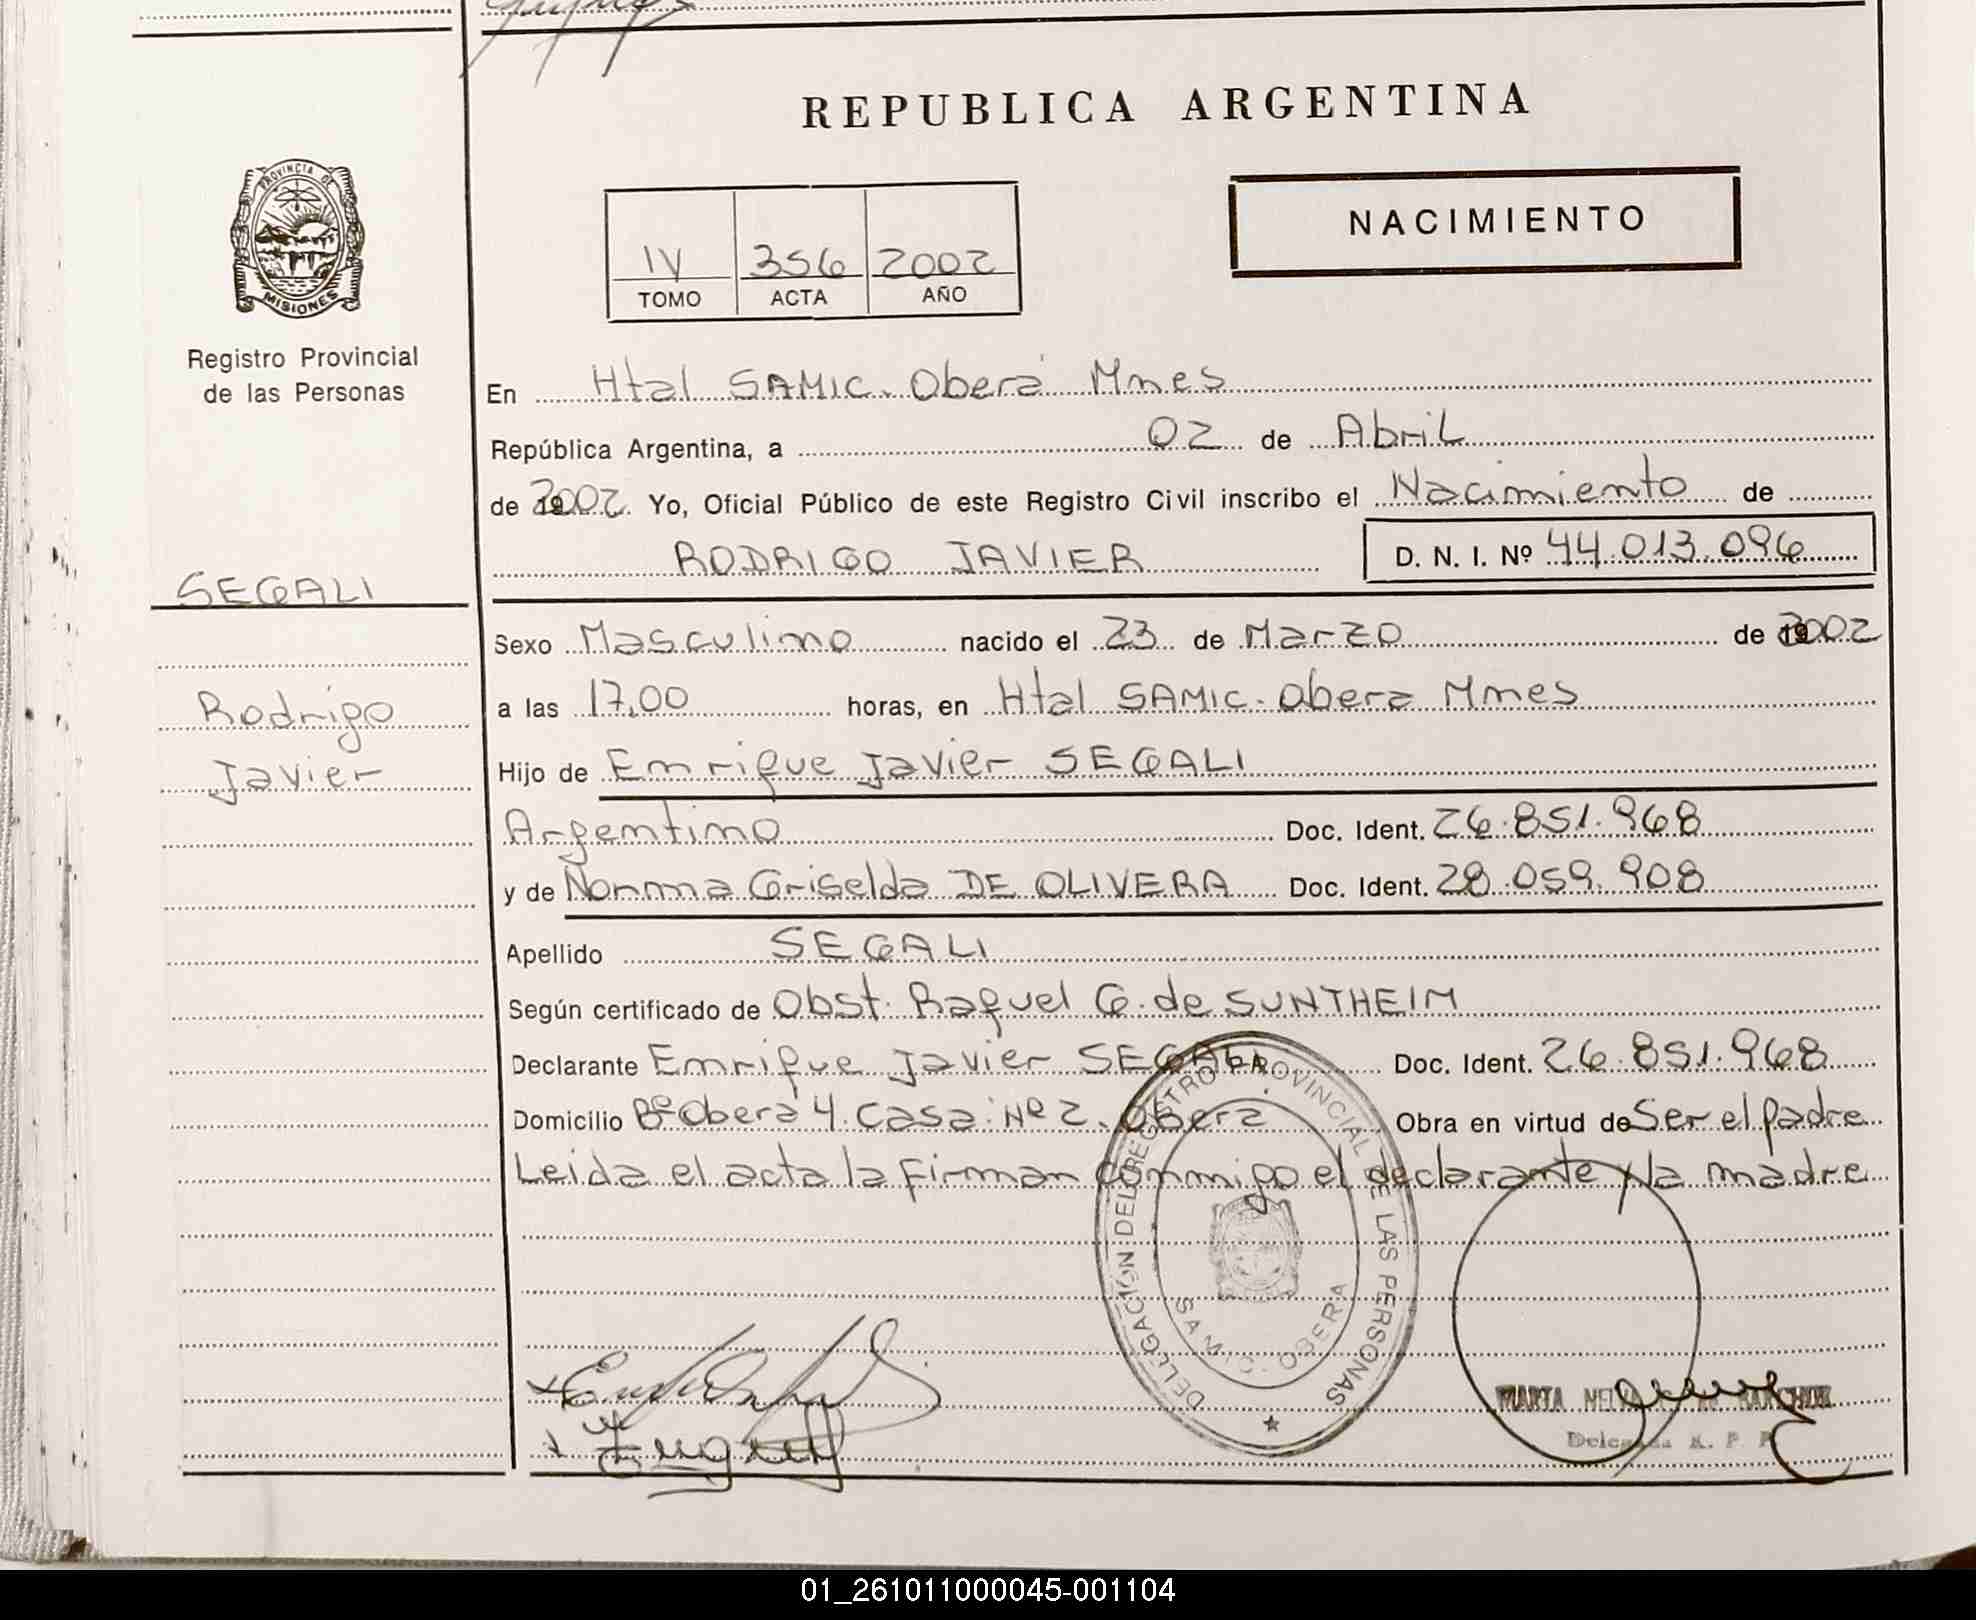 REPUBLICA ARGENTINA
PROVINCIA DE
MISIONES
Registro Provincial
de las Personas
NACIMIENTO
IV 356 2002
TOMO ACTA AÑO
En Htal SAMIC. Oberá Mnes
República Argentina, a 02 de Abril
de 2002 Yo, Oficial Público de este Registro Civil inscribo el Nacimiento de
RODRIGO JAVIER D. N. I. Nº 44.013.096
SEGALI
Rodrigo
Javier
Sexo Masculino nacido el 23 de Marzo de 2002
a las 17,00 horas, en Htal SAMIC. Obera Mnes
Hijo de Enrique Javier SEGALI
Argentino Doc. Ident. 26.851.968
y de Norma Griselda DE OLIVERA Doc. Ident. 28.059.908
Apellido SEGALI
Según certificado de Obst. Raquel G. de SUNTHEIM
Declarante Enrique Javier SEGALI Doc. Ident. 26.851.968
Domicilio Bº Oberá 4. Casa Nº 2. Obera Obra en virtud de Ser el padre
Leida el acta la firman conmigo el declarante y la madre
DELEGACIÓN DEL REGISTRO PROVINCIAL DE LAS PERSONAS
SAMIC. OBERA
MARTA
Delegada R. P. P.
01_261011000045-001104